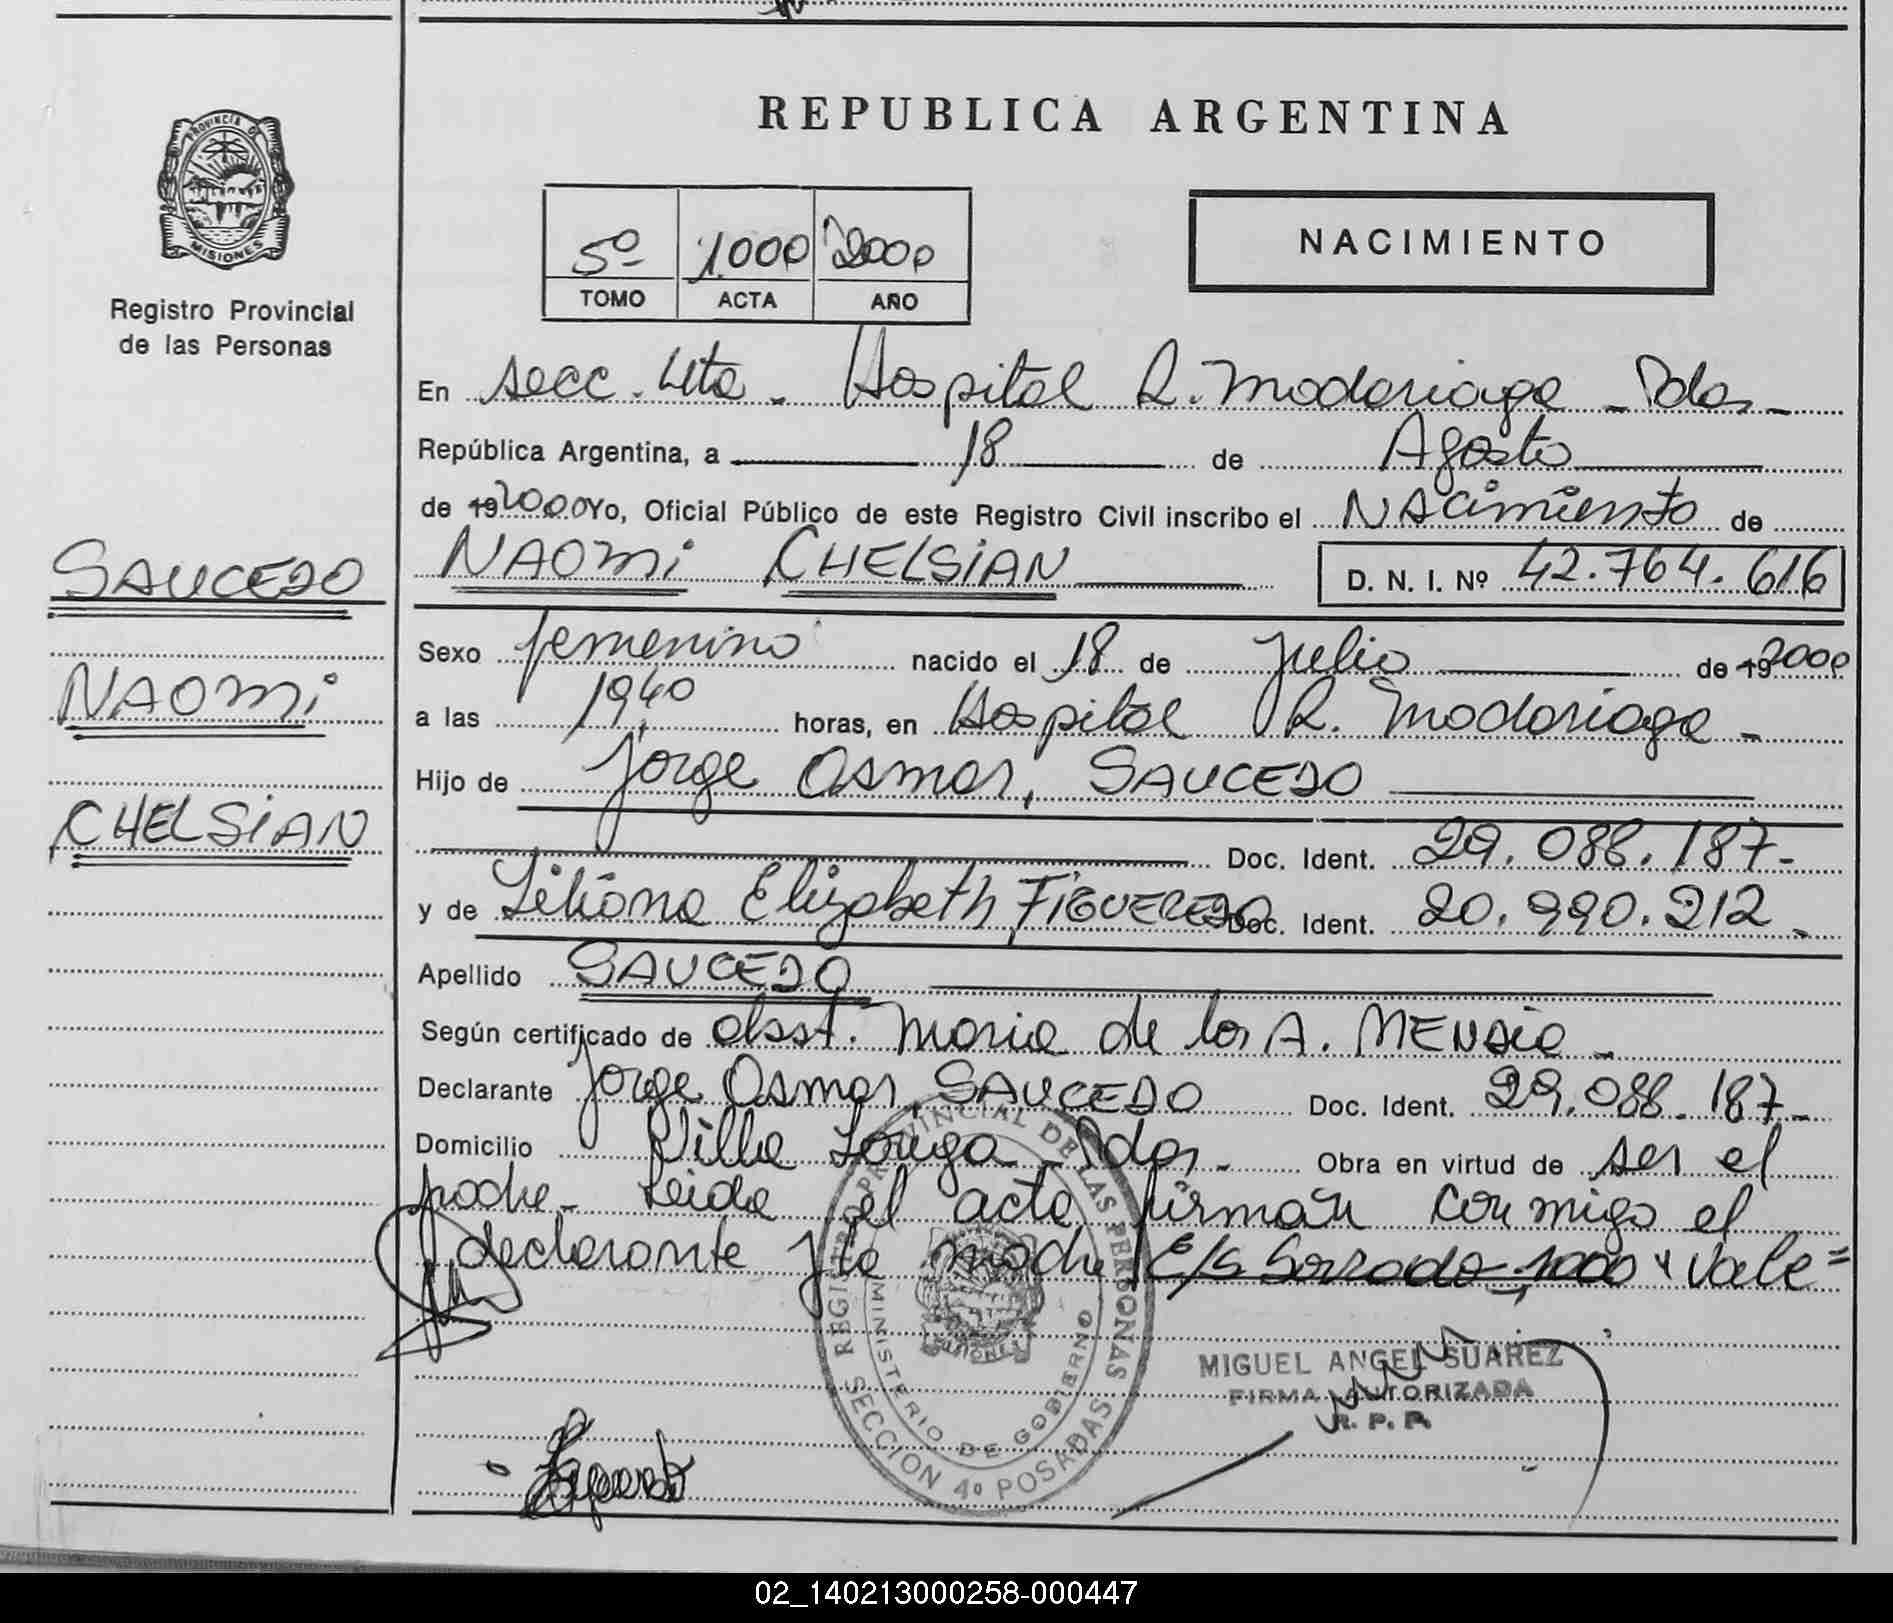 REPUBLICA ARGENTINA
PROVINCIA DE
MISIONES
Registro Provincial
de las Personas
5º 1000 2000
TOMO ACTA AÑO
NACIMIENTO
En secc. 4ta. Hospital R. Madariaga - Pdas -
República Argentina, a 18 de Agosto
de 19 2000 Yo, Oficial Público de este Registro Civil inscribo el NAcimiento de
NAOMi CHELSiAN D. N. I. Nº 42.764.616
SAUCEDO
NAOMi
CHELSiAN
Sexo femenino nacido el 18 de Julio de 19 2000
a las 19,40 horas, en Hospital R. Madariaga -
Hijo de Jorge Osmar, SAUCEDO
Doc. Ident. 29.088.187-
y de Liliana Elizabeth, FIGUEREDO Doc. Ident. 20.990.212 -
Apellido SAUCEDO
Según certificado de obst. Maria de los A. MENDie -
Declarante Jorge Osmar, SAUCEDO Doc. Ident. 29.088.187-
Domicilio Villa Longa - Pdas - Obra en virtud de ser el
padre - Leida el acta, firman conmigo el
declarante y la madre E/S Borrado - 1000 " Vale =
REGISTRO PROVINCIAL DE LAS PERSONAS
MINISTERIO DE GOBIERNO
MISIONES
SECCION 4º POSADAS
MIGUEL ANGEL SUAREZ
FIRMA AUTORIZADA
R. P. P.
02_140213000258-000447